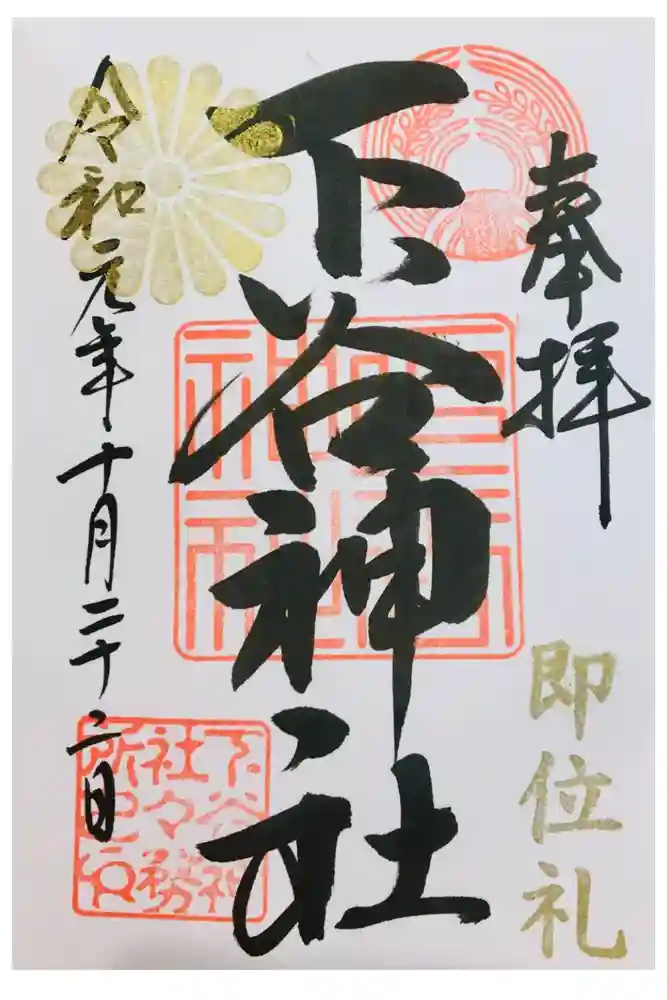 奉拝
即位礼
下谷神社
下谷神社
下谷神
社々務
所之印
令和元年十月二十二日